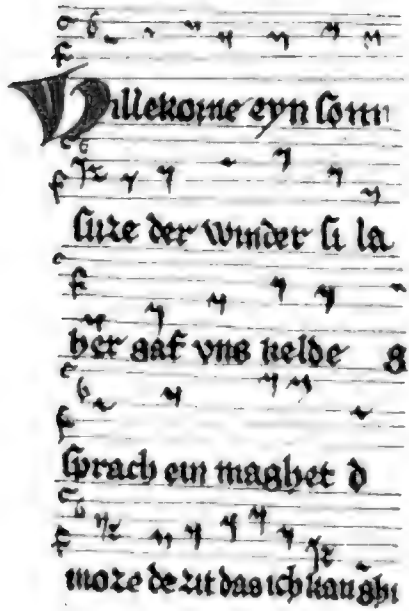 Willekome eyn som
suze der winder si la
her gaf vns kelde s
sprach ein maghet d
moze de zit das ich kan ghi